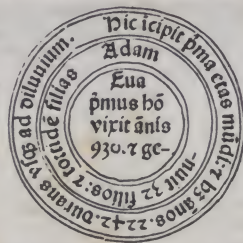 Hic īcipit p̄ma etas mūdi: ⁊ hꝫ ānos .2242. Durans vsqꝫ ad diluuium.
Adam
Eua
p̄mus hō
vixit ānis
930. ⁊ ge-
nuit 32 filios: ⁊ totidē filias